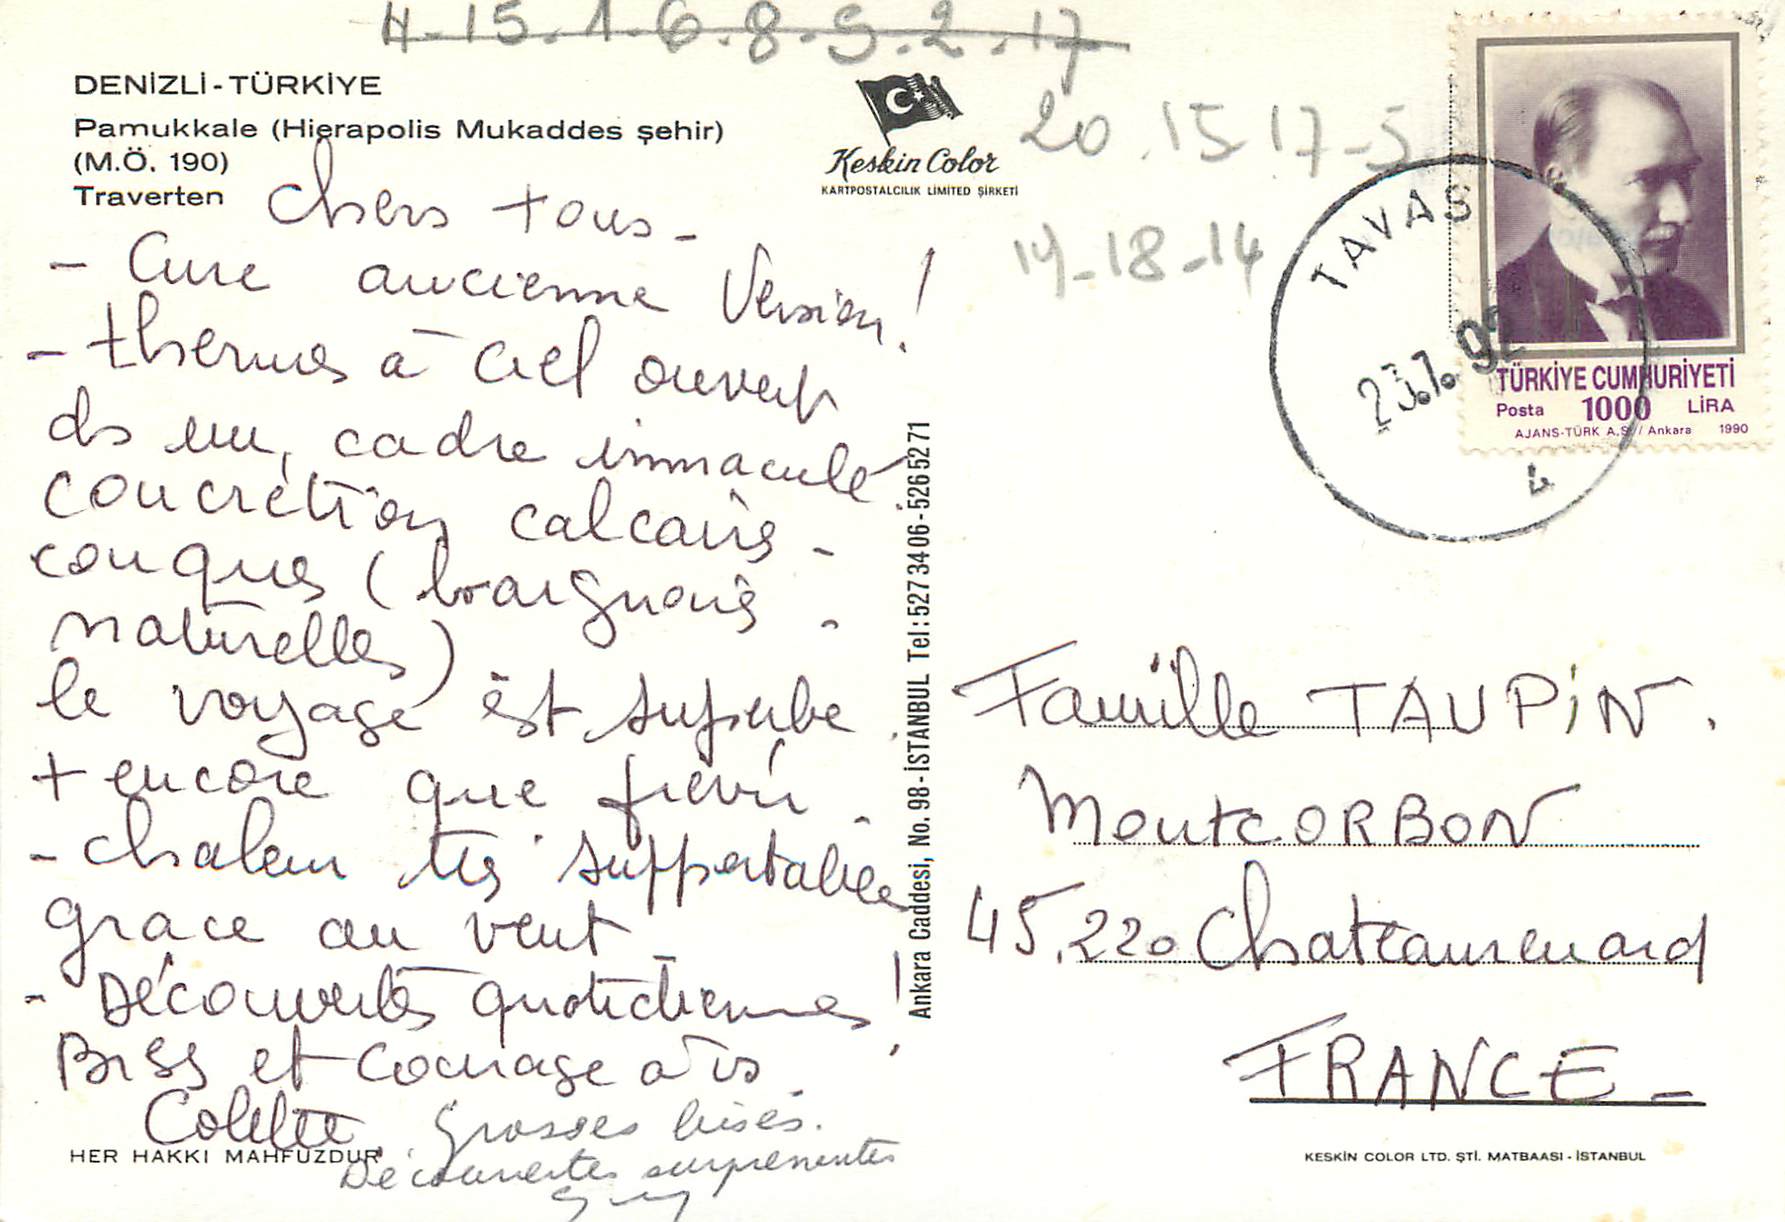 4-15.1.6.8-5.2-17
DENİZLİ-TÜRKİYE
Pamukkale (Hierapolis Mukaddes şehir)
(M.Ö. 190)
Traverten
Keskin Color
KARTPOSTALCILIK LİMİTED ŞİRKETİ
20.15 17-5
14-18-14
TAVAS
23.7.92
4
TÜRKİYE CUMHURİYETİ
Posta 1000 LİRA
AJANS-TÜRK A.Ş. / Ankara 1990
Chers tous-
- Cure ancienne Version!
- thermes à ciel ouvert
ds un, cadre immaculé
concrétion calcaires-
conques (baignoires-
naturelles)
le voyage est superbe
+ encore que prévu.
- chaleur très supportable
grace au vent-
- Découvertes quotidiennes!
Bises et courage à vs
Colette. Grosses bises.
Découvertes surprenentes
Guy
HER HAKKI MAHFUZDUR
Ankara Caddesi, No. 98-İSTANBUL Tel: 527 34 06-526 52 71
Famille TAUPiN.
MontCORBON
45.220 Chateaurenard
FRANCE-
KESKIN COLOR LTD. ŞTİ. MATBAASI-İSTANBUL